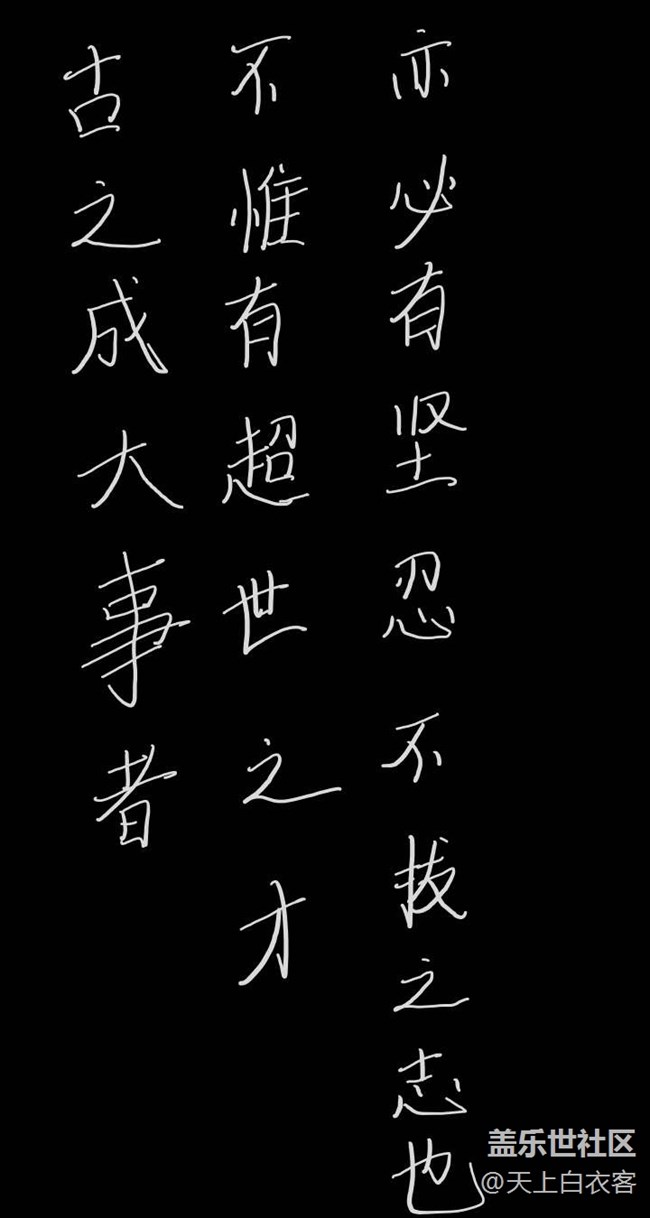 古之成大事者
不惟有超世之才
亦必有坚忍不拔之志也
盖乐世社区
@天上白衣客